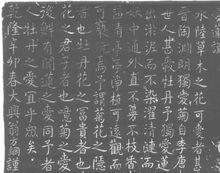 水陸草木之花可愛者甚
晉陶淵明獨愛菊自李唐
世人甚愛牡丹予獨愛蓮
出淤泥而不染濯清漣而
妖中通外直不蔓不枝香
益清亭亭淨植可遠觀而
玩焉予謂菊花之隱
者也牡丹花之富貴者也
花之君子者也噫菊之愛
後鮮有聞蓮之愛同予者
人牡丹之愛宜乎眾矣
乾隆辛卯春大興翁方綱謹